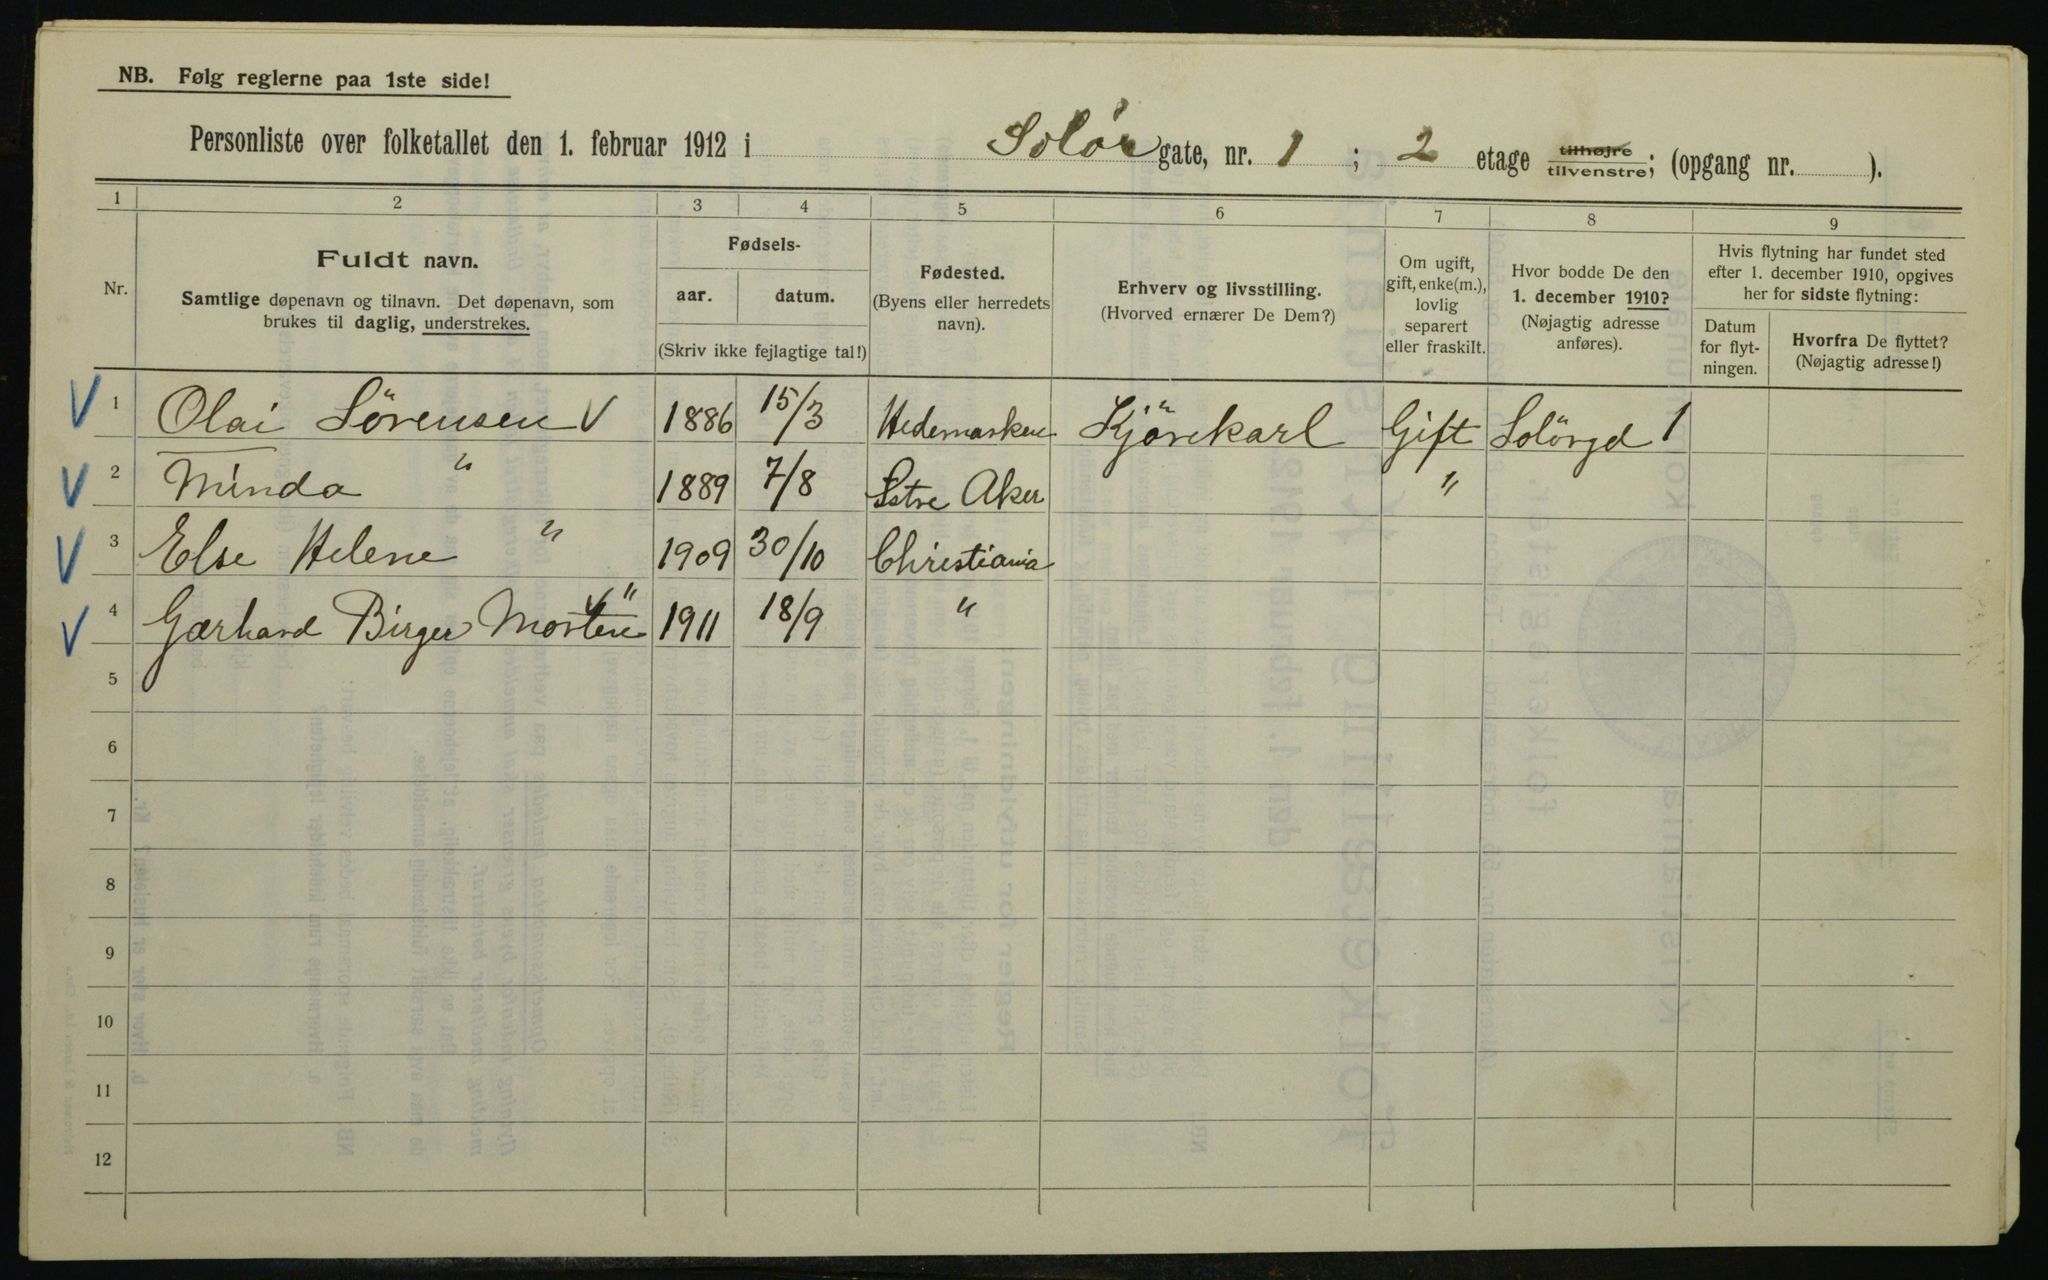 NB. Følg reglerne paa 1ste side!
Personliste over folketallet den 1. februar 1912 i Solör gate, nr. 1 ; 2 etage tilhøjre tilvenstre; (opgang nr. ).
1 2 3 4 5 6 7 8 9
Nr.
Fuldt navn.
Samtlige døpenavn og tilnavn. Det døpenavn, som
brukes til daglig, understrekes.
Fødsels-
aar. datum.
(Skriv ikke fejlagtige tal!)
Fødested.
(Byens eller herredets
navn).
Erhverv og livsstilling.
(Hvorved ernærer De Dem?)
Om ugift,
gift, enke(m.),
lovlig
separert
eller fraskilt.
Hvor bodde De den
1. december 1910?
(Nøjagtig adresse
anføres).
Hvis flytning har fundet sted
efter 1. december 1910, opgives
her for sidste flytning:
Datum
for flyt-
ningen.
Hvorfra De flyttet?
(Nøjagtig adresse!)
V 1 Olai Sörensen V 1886 15/3 Hedemarken Kjörekarl Gift Solörgd 1
V 2 Minda " 1889 7/8 Aker "
V 3 Else Helene " 1909 30/10 Christiania
V 4 Gærhard Birger Morten " 1911 18/9 "
5
6
7
8
9
10
11
12